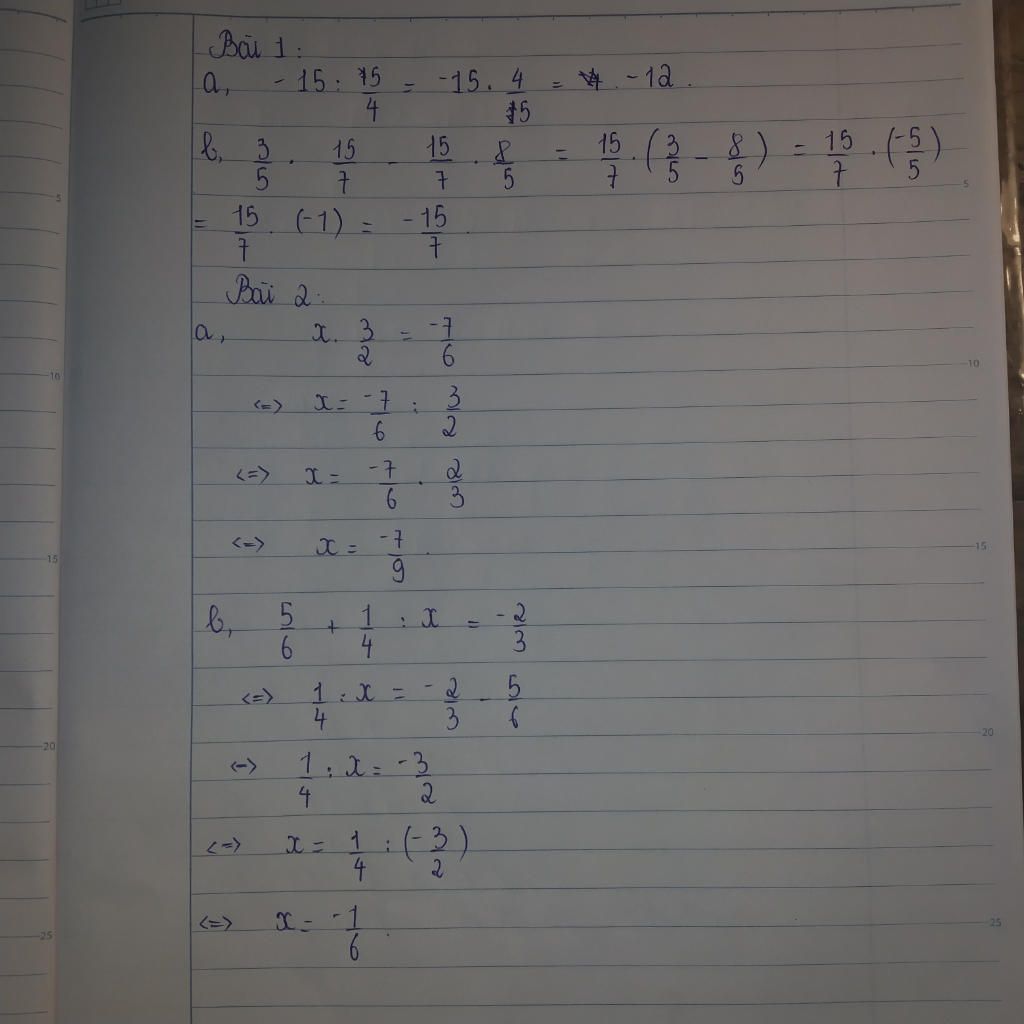 Bài 1:
a, -15 : 5/4 = -15 . 4/5 = -12 .
b, 3/5 . 15/7 - 15/7 . 8/5 = 15/7 . (3/5 - 8/5) = 15/7 . (-5/5)
= 15/7 . (-1) = -15/7 .
Bài 2:
a, x . 3/2 = -7/6
<=> x = -7/6 : 3/2
<=> x = -7/6 . 2/3
<=> x = -7/9 .
b, 5/6 + 1/4 : x = -2/3
<=> 1/4 : x = -2/3 - 5/6
<=> 1/4 : x = -3/2
<=> x = 1/4 : (-3/2)
<=> x = -1/6 .
5
10
15
20
25
5
10
15
20
25